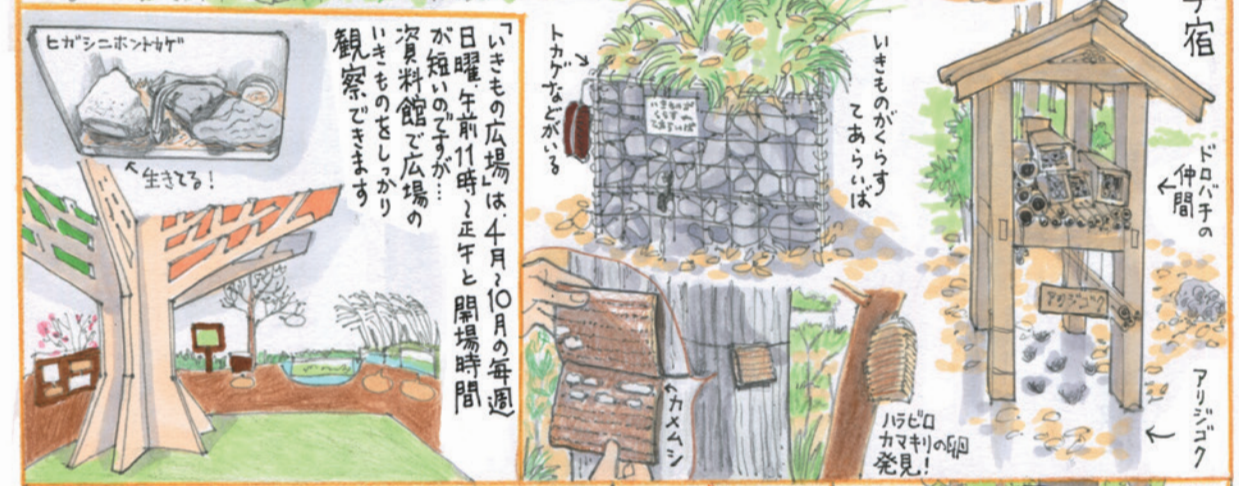 宿
ドロバチの
仲間
アリジゴク
アリジゴク
いきものがくらす
てあらいば
いきものが
くらす
てあらいば
トカゲなどがいる
カメムシ
ハラビロ
カマキリの卵
発見！
「いきもの広場」は、4月〜10月の毎週
日曜、午前11時〜正午と開場時間
が短いのですが…
資料館で広場の
いきものをしっかり
観察できます
ヒガシニホントカゲ
生きてる！